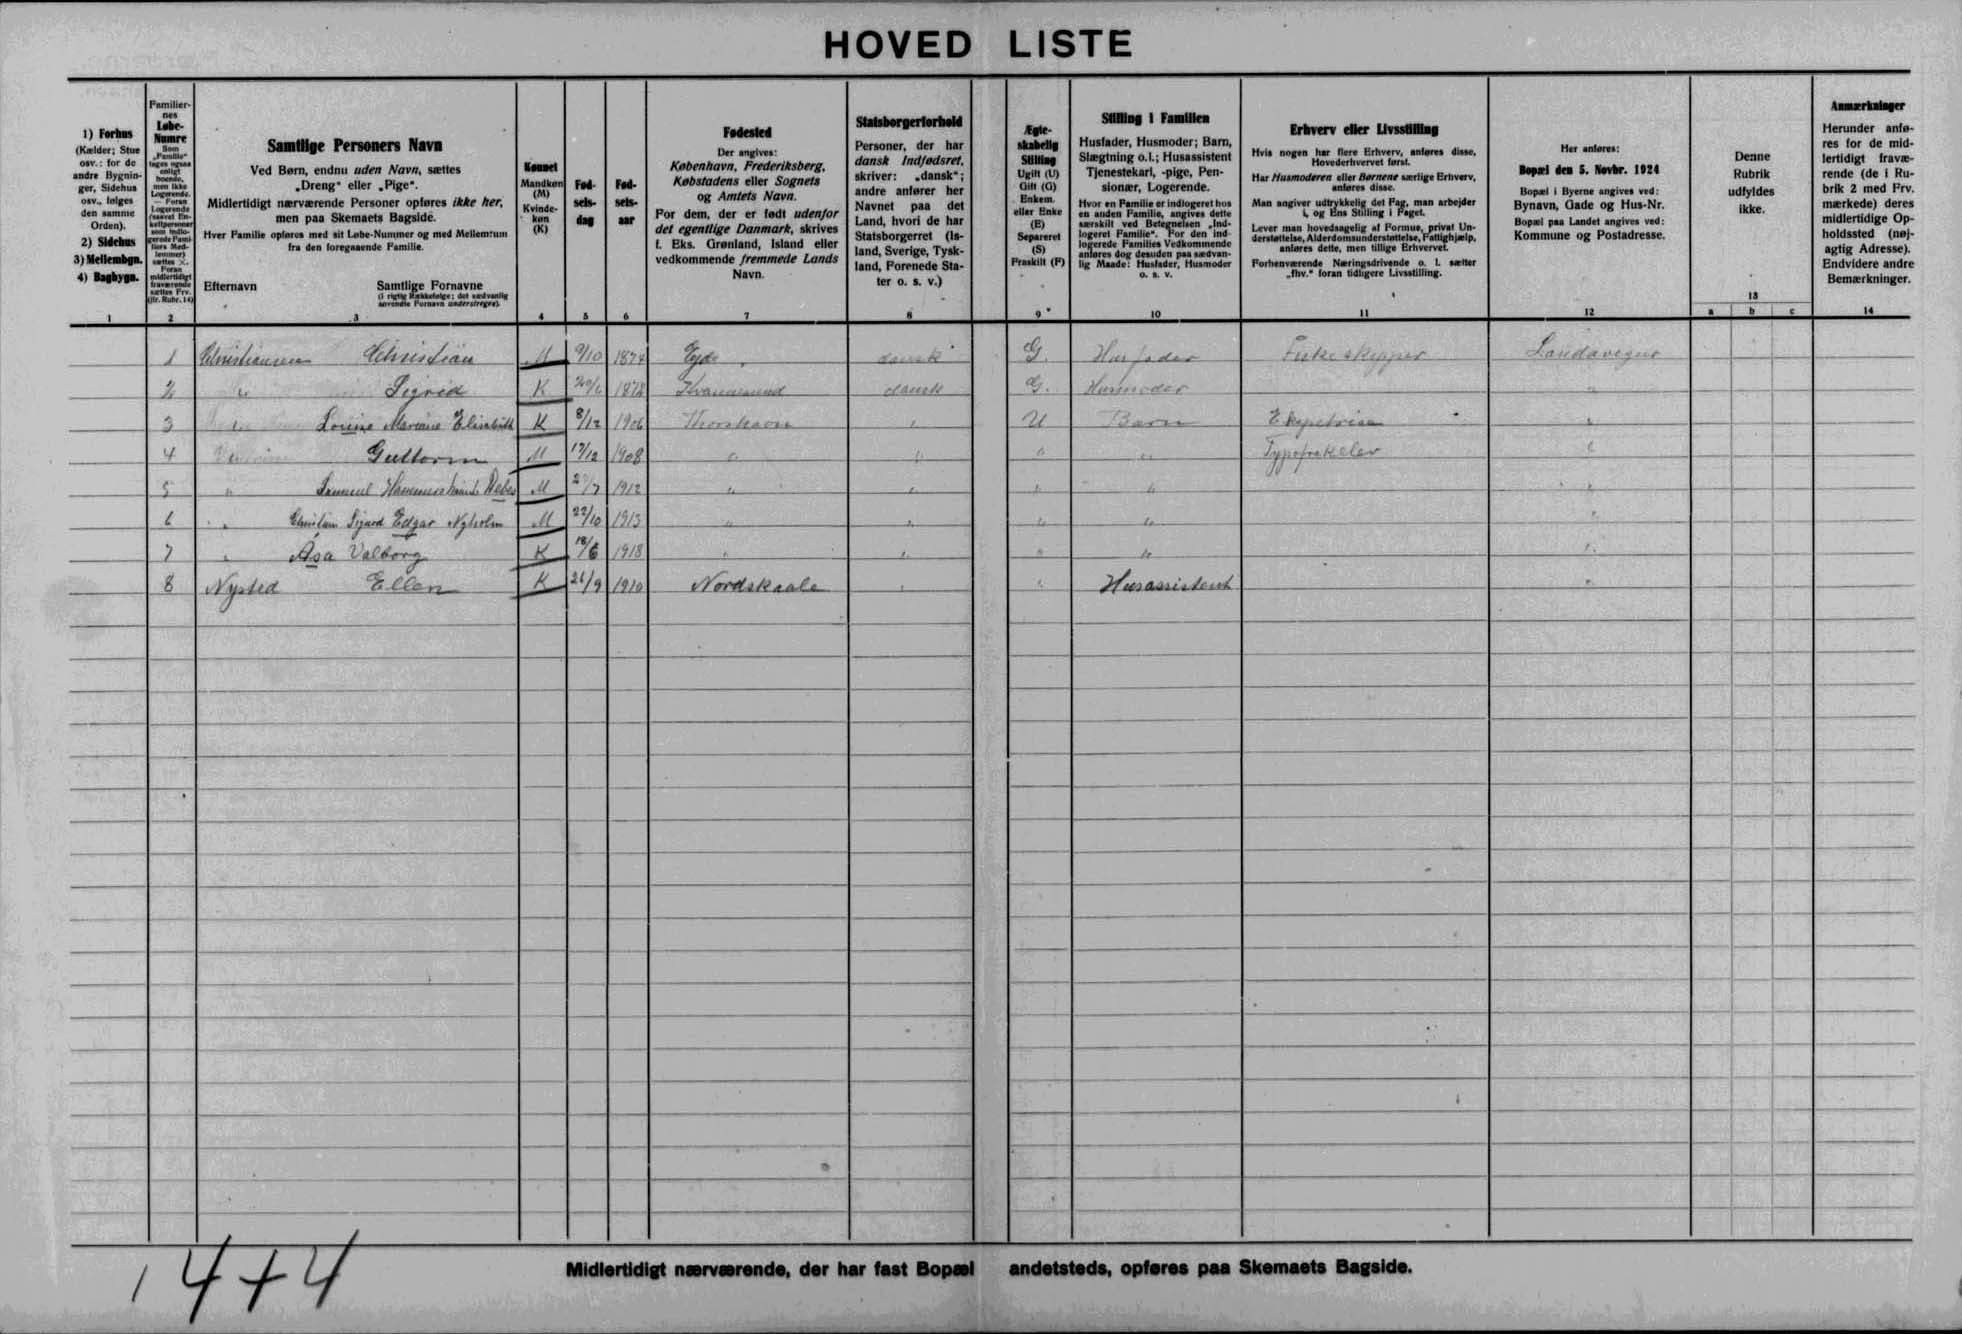 HOVED LISTE
1) Forhus
(Kælder; Stue
osv.: for de
andre Bygnin-
ger, Sidehus
osv., følges
den samme
Orden).
2) Sidehus
3) Mellembgn.
4) Bagbygn.
1
Familier-
nes
Løbe-
Numre
Som
„Familie"
tages ogsaa
enligt
boende,
men ikke
Logerende.
— Foran
Logerende
(saavel En-
keltpersoner
som indlo-
gerede Fami-
liers Med-
lemmer)
sættes ×.
Foran
midlertidigt
fraværende
sættes Frv.
(jfr. Rubr. 14)
2
Samtlige Personers Navn
Ved Børn, endnu uden Navn, sættes
„Dreng" eller „Pige".
Midlertidigt nærværende Personer opføres ikke her,
men paa Skemaets Bagside.
Hver Familie opføres med sit Løbe-Nummer og med Mellemrum
fra den foregaaende Familie.
Efternavn Samtlige Fornavne
(i rigtig Rækkefølge; det sædvanlig
anvendte Fornavn understreges).
3
Kønnet
Mandkøn
(M)
Kvinde-
køn
(K)
4
Fød-
sels-
dag
5
Fød-
sels-
aar
6
Fødested
Der angives:
København, Frederiksberg,
Købstadens eller Sognets
og Amtets Navn.
For dem, der er født udenfor
det egentlige Danmark, skrives
f. Eks. Grønland, Island eller
vedkommende fremmede Lands
Navn.
7
Statsborgerforhold
Personer, der har
dansk Indfødsret,
skriver: „dansk";
andre anfører her
Navnet paa det
Land, hvori de har
Statsborgerret (Is-
land, Sverige, Tysk-
land, Forenede Sta-
ter o. s. v.)
8
Ægte-
skabelig
Stilling
Ugift (U)
Gift (G)
Enkem.
eller Enke
(E)
Separeret
(S)
Fraskilt (F)
9
Stilling i Familien
Husfader, Husmoder; Barn,
Slægtning o.l.; Husassistent
Tjenestekarl, -pige, Pen-
sionær, Logerende.
Hvor en Familie er indlogeret hos
en anden Familie, angives dette
særskilt ved Betegnelsen „Ind-
logeret Familie". For den ind-
logerede Families Vedkommende
anføres dog desuden paa sædvan-
lig Maade: Husfader, Husmoder
o. s. v.
10
Erhverv eller Livsstilling
Hvis nogen har flere Erhverv, anføres disse,
Hovederhvervet først.
Har Husmoderen eller Børnene særlige Erhverv,
anføres disse.
Man angiver udtrykkelig det Fag, man arbejder
i, og Ens Stilling i Faget.
Lever man hovedsagelig af Formue, privat Un-
derstøttelse, Alderdomsunderstøttelse, Fattighjælp,
anføres dette, men tillige Erhvervet.
Forhenværende Næringsdrivende o. l. sætter
„fhv." foran tidligere Livsstilling.
11
Her anføres:
Bopæl den 5. Novbr. 1924
Bopæl i Byerne angives ved:
Bynavn, Gade og Hus-Nr.
Bopæl paa Landet angives ved:
Kommune og Postadresse.
12
Denne
Rubrik
udfyldes
ikke.
13
a b c
Anmærkninger
Herunder anfø-
res for de mid-
lertidigt fravæ-
rende (de i Ru-
brik 2 med Frv.
mærkede) deres
midlertidige Op-
holdssted (nøj-
agtig Adresse).
Endvidere andre
Bemærkninger.
14
1 Christiansen Christian M 9/10 1874 Ejde dansk G. Husfader Fiskeskipper Landavegur
2 " Sigrid K 1878 Kvannesund dansk G. Husmoder "
3 " Louise Mariane Elisabeth K 8/12 1906 Thorshavn " U Barn "
4 " Guttorm M 17/12 1908 " " " " "
5 " Samuel Debes M 1912 " " " " "
6 " Christian Sigurd Edgar Nyholm M 22/10 1913 " " " " "
7 " Asa Valborg K 18/6 1918 " " " " "
8 Nysted Ellen K 26/9 1910 Nordskaale " " Husassistent "
Midlertidigt nærværende, der har fast Bopæl andetsteds, opføres paa Skemaets Bagside.
4+4